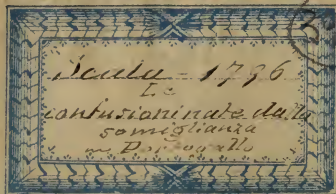 Scala - 1796
Le
confusioni nate dalla
somiglianza
Portogallo